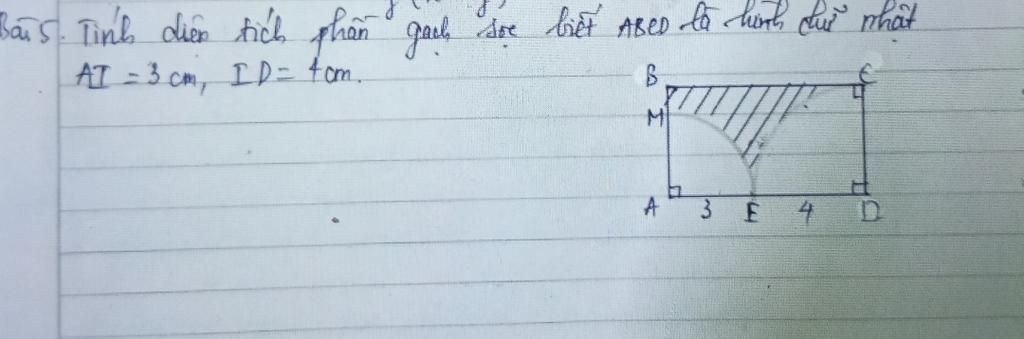 Bài 5. Tính diện tích phần gạch sọc biết ABCD là hình chữ nhật
AI = 3 cm, ID = 4 cm.
B C
M
A 3 E 4 D